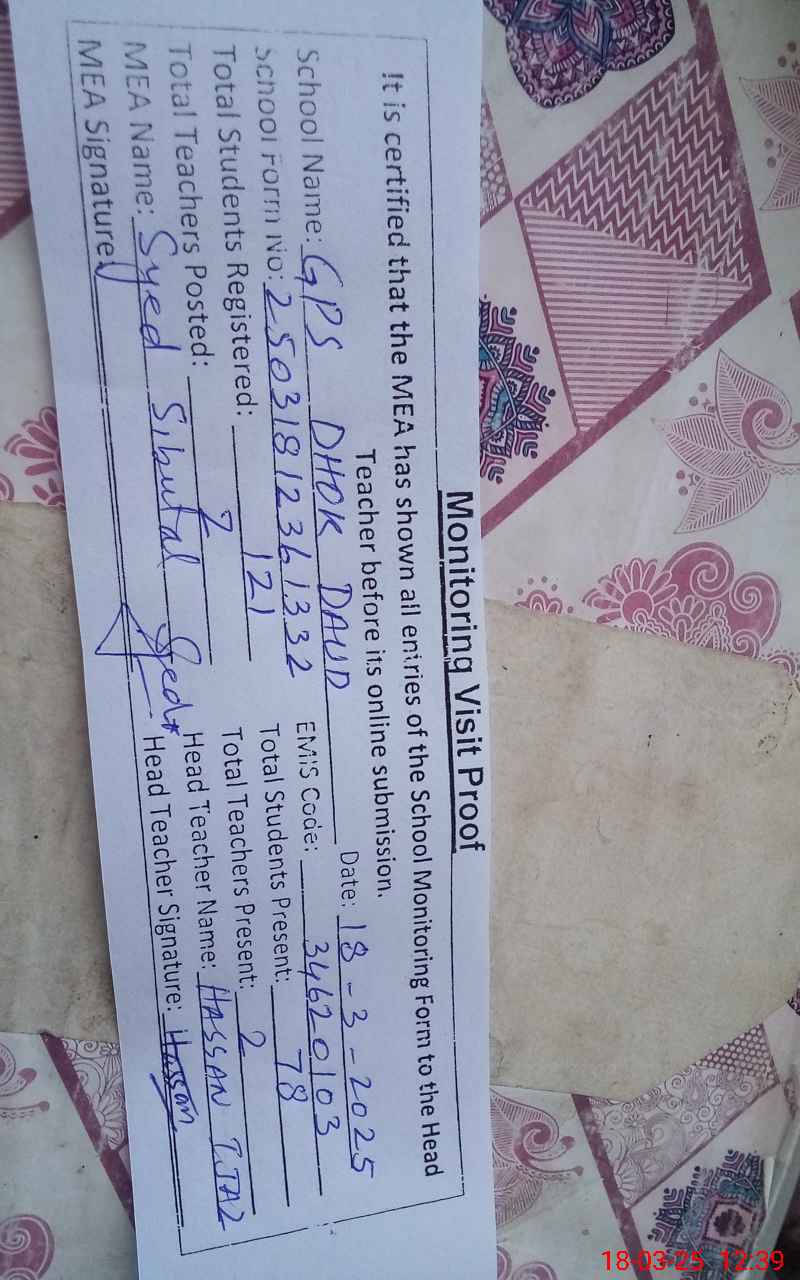 Monitoring Visit Proof
It is certified that the MEA has shown all entries of the School Monitoring Form to the Head
Teacher before its online submission.
School Name: GPS DHOK DAUD Date: 18-3-2025
School Form No: 25031812361332 EMIS Code: 34620103
Total Students Registered: 121 Total Students Present: 78
Total Teachers Posted: 2 Total Teachers Present: 2
MEA Name: Syed Sibutal Head Teacher Name: HASSAN IJAZ
MEA Signature: Head Teacher Signature: Hassan
18-03-25 12:39